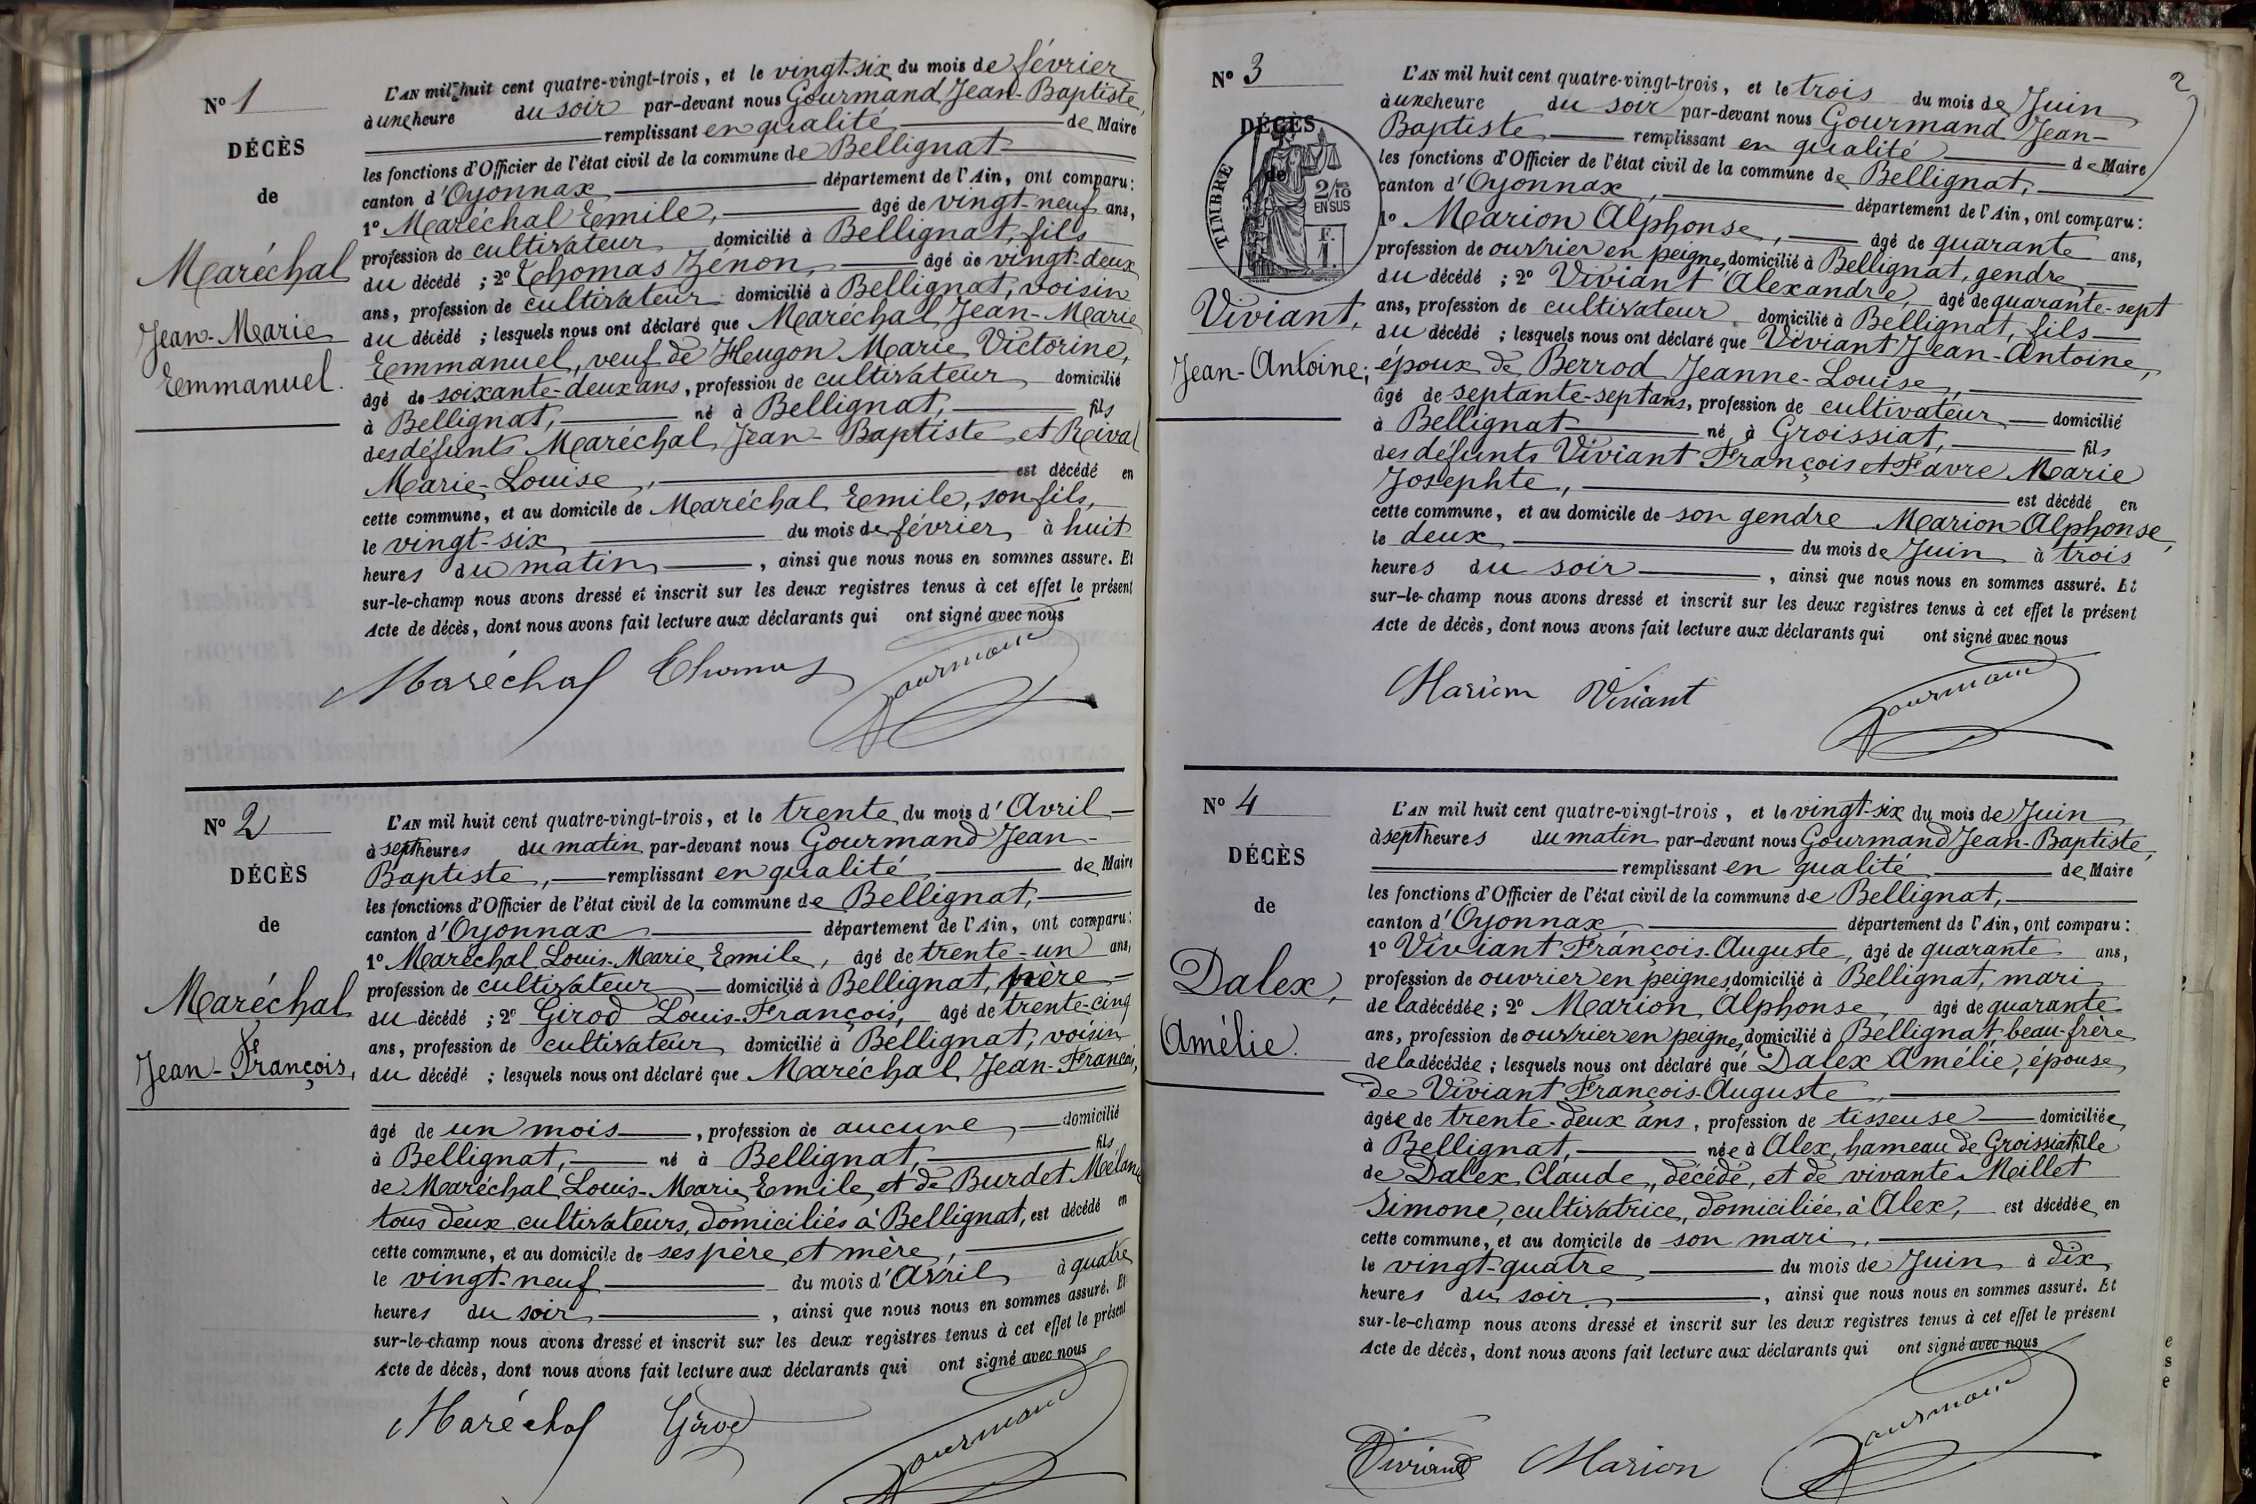 N° 1
DÉCÈS
de
Maréchal
Jean-Marie
Emmanuel.
L'AN mil huit cent quatre-vingt-trois, et le vingt-six du mois de février
à une heure du soir par-devant nous Gourmand Jean-Baptiste,
remplissant en qualité de Maire
les fonctions d'Officier de l'état civil de la commune de Bellignat
canton d'Oyonnax département de l'Ain, ont comparu:
1° Maréchal Emile, âgé de vingt-neuf ans,
profession de cultivateur domicilié à Bellignat, fils
du décédé ; 2° Thomas Zénon, âgé de vingt-deux
ans, profession de cultivateur domicilié à Bellignat, voisin
du décédé ; lesquels nous ont déclaré que Maréchal Jean-Marie
Emmanuel, veuf de Hugon Marie Victorine,
âgé de soixante-deux ans, profession de cultivateur domicilié
à Bellignat, né à Bellignat, fils
des défunts Maréchal Jean-Baptiste et Reival
Marie-Louise, est décédé en
cette commune, et au domicile de Maréchal Emile, son fils,
le vingt-six du mois de février à huit
heures du matin, ainsi que nous nous en sommes assure. Et
sur-le-champ nous avons dressé et inscrit sur les deux registres tenus à cet effet le présent
Acte de décès, dont nous avons fait lecture aux déclarants qui ont signé avec nous
Maréchal Thomas Gourmand
N° 2
DÉCÈS
de
Maréchal
Jean-François,
L'AN mil huit cent quatre-vingt-trois, et le trente du mois d'Avril
à sept heures du matin par-devant nous Gourmand Jean-
Baptiste, remplissant en qualité de Maire
les fonctions d'Officier de l'état civil de la commune de Bellignat,
canton d'Oyonnax département de l'Ain, ont comparu:
1° Maréchal Louis-Marie Emile, âgé de trente-un ans,
profession de cultivateur domicilié à Bellignat, père
du décédé ; 2° Girod Louis-François, âgé de trente-cinq
ans, profession de cultivateur domicilié à Bellignat, voisin
du décédé ; lesquels nous ont déclaré que Maréchal Jean-François,
âgé de un mois, profession de aucune, domicilié
à Bellignat, né à Bellignat, fils
de Maréchal Louis-Marie Emile et de Burdet Mélanie
tous deux cultivateurs, domiciliés à Bellignat, est décédé en
cette commune, et au domicile de ses père et mère,
le vingt-neuf du mois d'Avril à quatre
heures du soir, ainsi que nous nous en sommes assuré. Et
sur-le-champ nous avons dressé et inscrit sur les deux registres tenus à cet effet le présent
Acte de décès, dont nous avons fait lecture aux déclarants qui ont signé avec nous
Maréchal Girod Gourmand
2
N° 3
DÉCÈS
de
TIMBRE
2/10
EN SUS
F.
1.
Viviant,
Jean-Antoine;
L'AN mil huit cent quatre-vingt-trois, et le trois du mois de Juin
à une heure du soir par-devant nous Gourmand Jean-
Baptiste remplissant en qualité de Maire
les fonctions d'Officier de l'état civil de la commune de Bellignat,
canton d'Oyonnax, département de l'Ain, ont comparu:
1° Marion Alphonse, âgé de quarante ans,
profession de ouvrier en peignes, domicilié à Bellignat, gendre
du décédé ; 2° Viviant Alexandre, âgé de quarante-sept
ans, profession de cultivateur domicilié à Bellignat, fils
du décédé ; lesquels nous ont déclaré que Viviant Jean-Antoine,
époux de Berrod Jeanne-Louise,
âgé de septante-sept ans, profession de cultivateur domicilié
à Bellignat né à Groissiat, fils
des défunts Viviant François et Favre Marie
Josephte, est décédé en
cette commune, et au domicile de son gendre Marion Alphonse,
le deux du mois de Juin à trois
heures du soir, ainsi que nous nous en sommes assuré. Et
sur-le-champ nous avons dressé et inscrit sur les deux registres tenus à cet effet le présent
Acte de décès, dont nous avons fait lecture aux déclarants qui ont signé avec nous
Marion Viviant Gourmand
N° 4
DÉCÈS
de
Dalex,
Amélie.
L'AN mil huit cent quatre-vingt-trois, et le vingt-six du mois de Juin
à sept heures du matin par-devant nous Gourmand Jean-Baptiste,
remplissant en qualité de Maire
les fonctions d'Officier de l'état civil de la commune de Bellignat,
canton d'Oyonnax, département de l'Ain, ont comparu:
1° Viviant François-Auguste, âgé de quarante ans,
profession de ouvrier en peignes domicilié à Bellignat, mari
de la décédée ; 2° Marion Alphonse âgé de quarante
ans, profession de ouvrier en peignes, domicilié à Bellignat, beau-frère
de la décédée ; lesquels nous ont déclaré que Dalex Amélie, épouse
de Viviant François-Auguste,
âgée de trente-deux ans, profession de tisseuse domiciliée
à Bellignat, née à Alex, hameau de Groissiat fille
de Dalex Claude, décédé, et de vivante Meillet
Simone, cultivatrice, domiciliée à Alex, est décédée en
cette commune, et au domicile de son mari,
le vingt-quatre du mois de Juin à dix
heures du soir, ainsi que nous nous en sommes assuré. Et
sur-le-champ nous avons dressé et inscrit sur les deux registres tenus à cet effet le présent
Acte de décès, dont nous avons fait lecture aux déclarants qui ont signé avec nous
Viviand Marion Gourmand
e
s
e